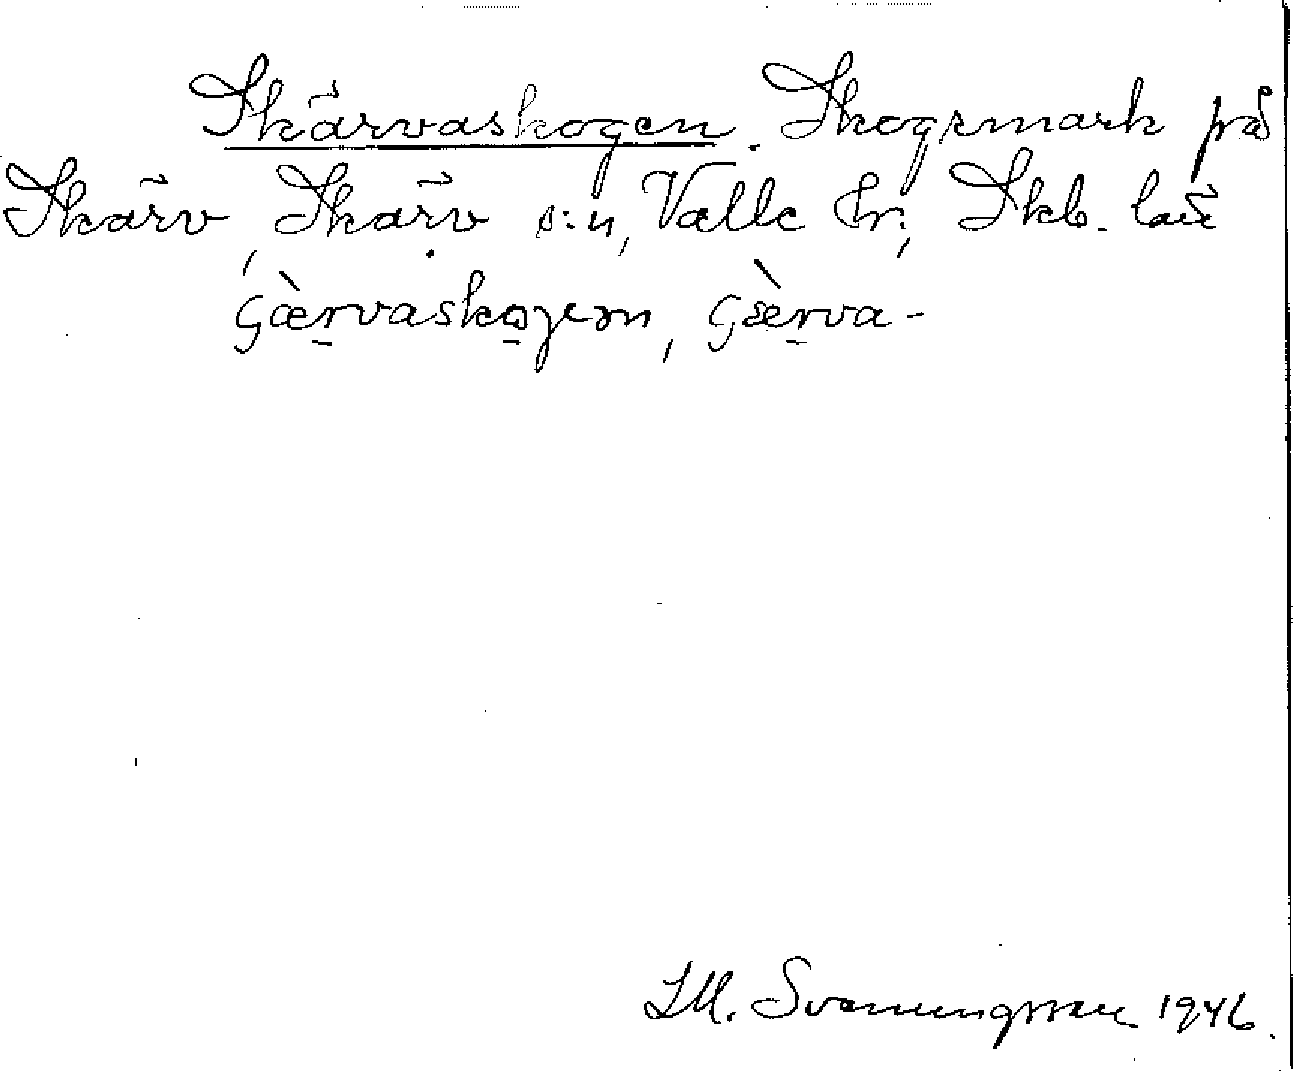 Skärvaskogen. Skogsmark på
Skärv, Skärv s:n, Valle hr., Skb. län
ʃæ̀rvaskoɣən, ʃɛ̀rva-
Svenningsson 1946.